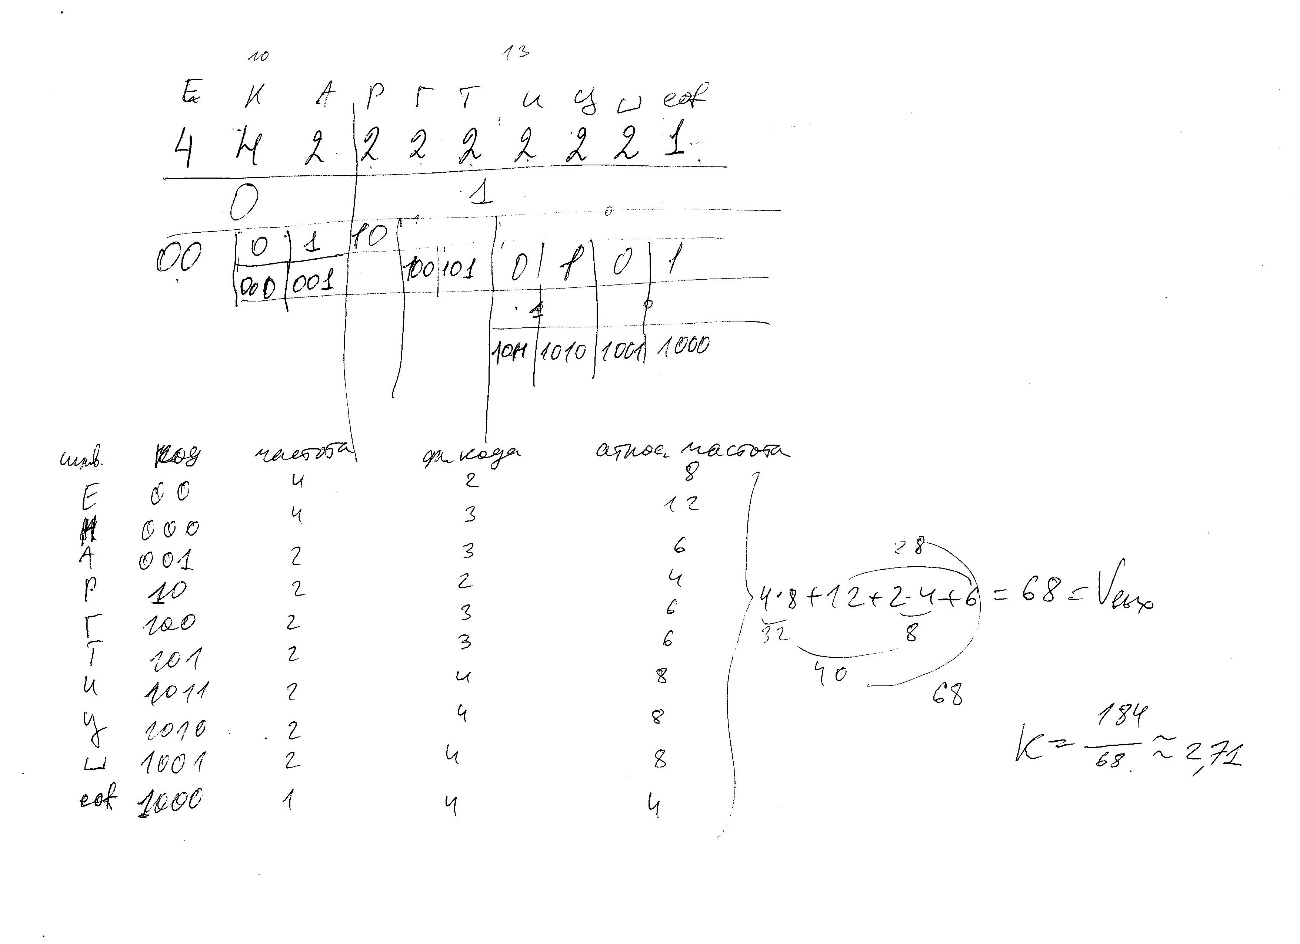 10 13
Е К А Р Г Т И У ⌴ eof
4 4 2 2 2 2 2 2 2 1
0 1
0
00 0 1 10
000 001 100 101 0 1 0 1
1 0
1011 1010 1001 1000
симв. код частота дл. кода относ. частота
Е 00 4 2 8
К 000 4 3 12
А 001 2 3 6
Р 10 2 2 4
Г 100 2 3 6
Т 101 2 3 6
И 1011 2 4 8
У 1010 2 4 8
⌴ 1001 2 4 8
eof 1000 1 4 4
28
4·8+12+2·4+6 = 68 = Vвых
32 8
40
68
K = 184/68 ≈ 2,71